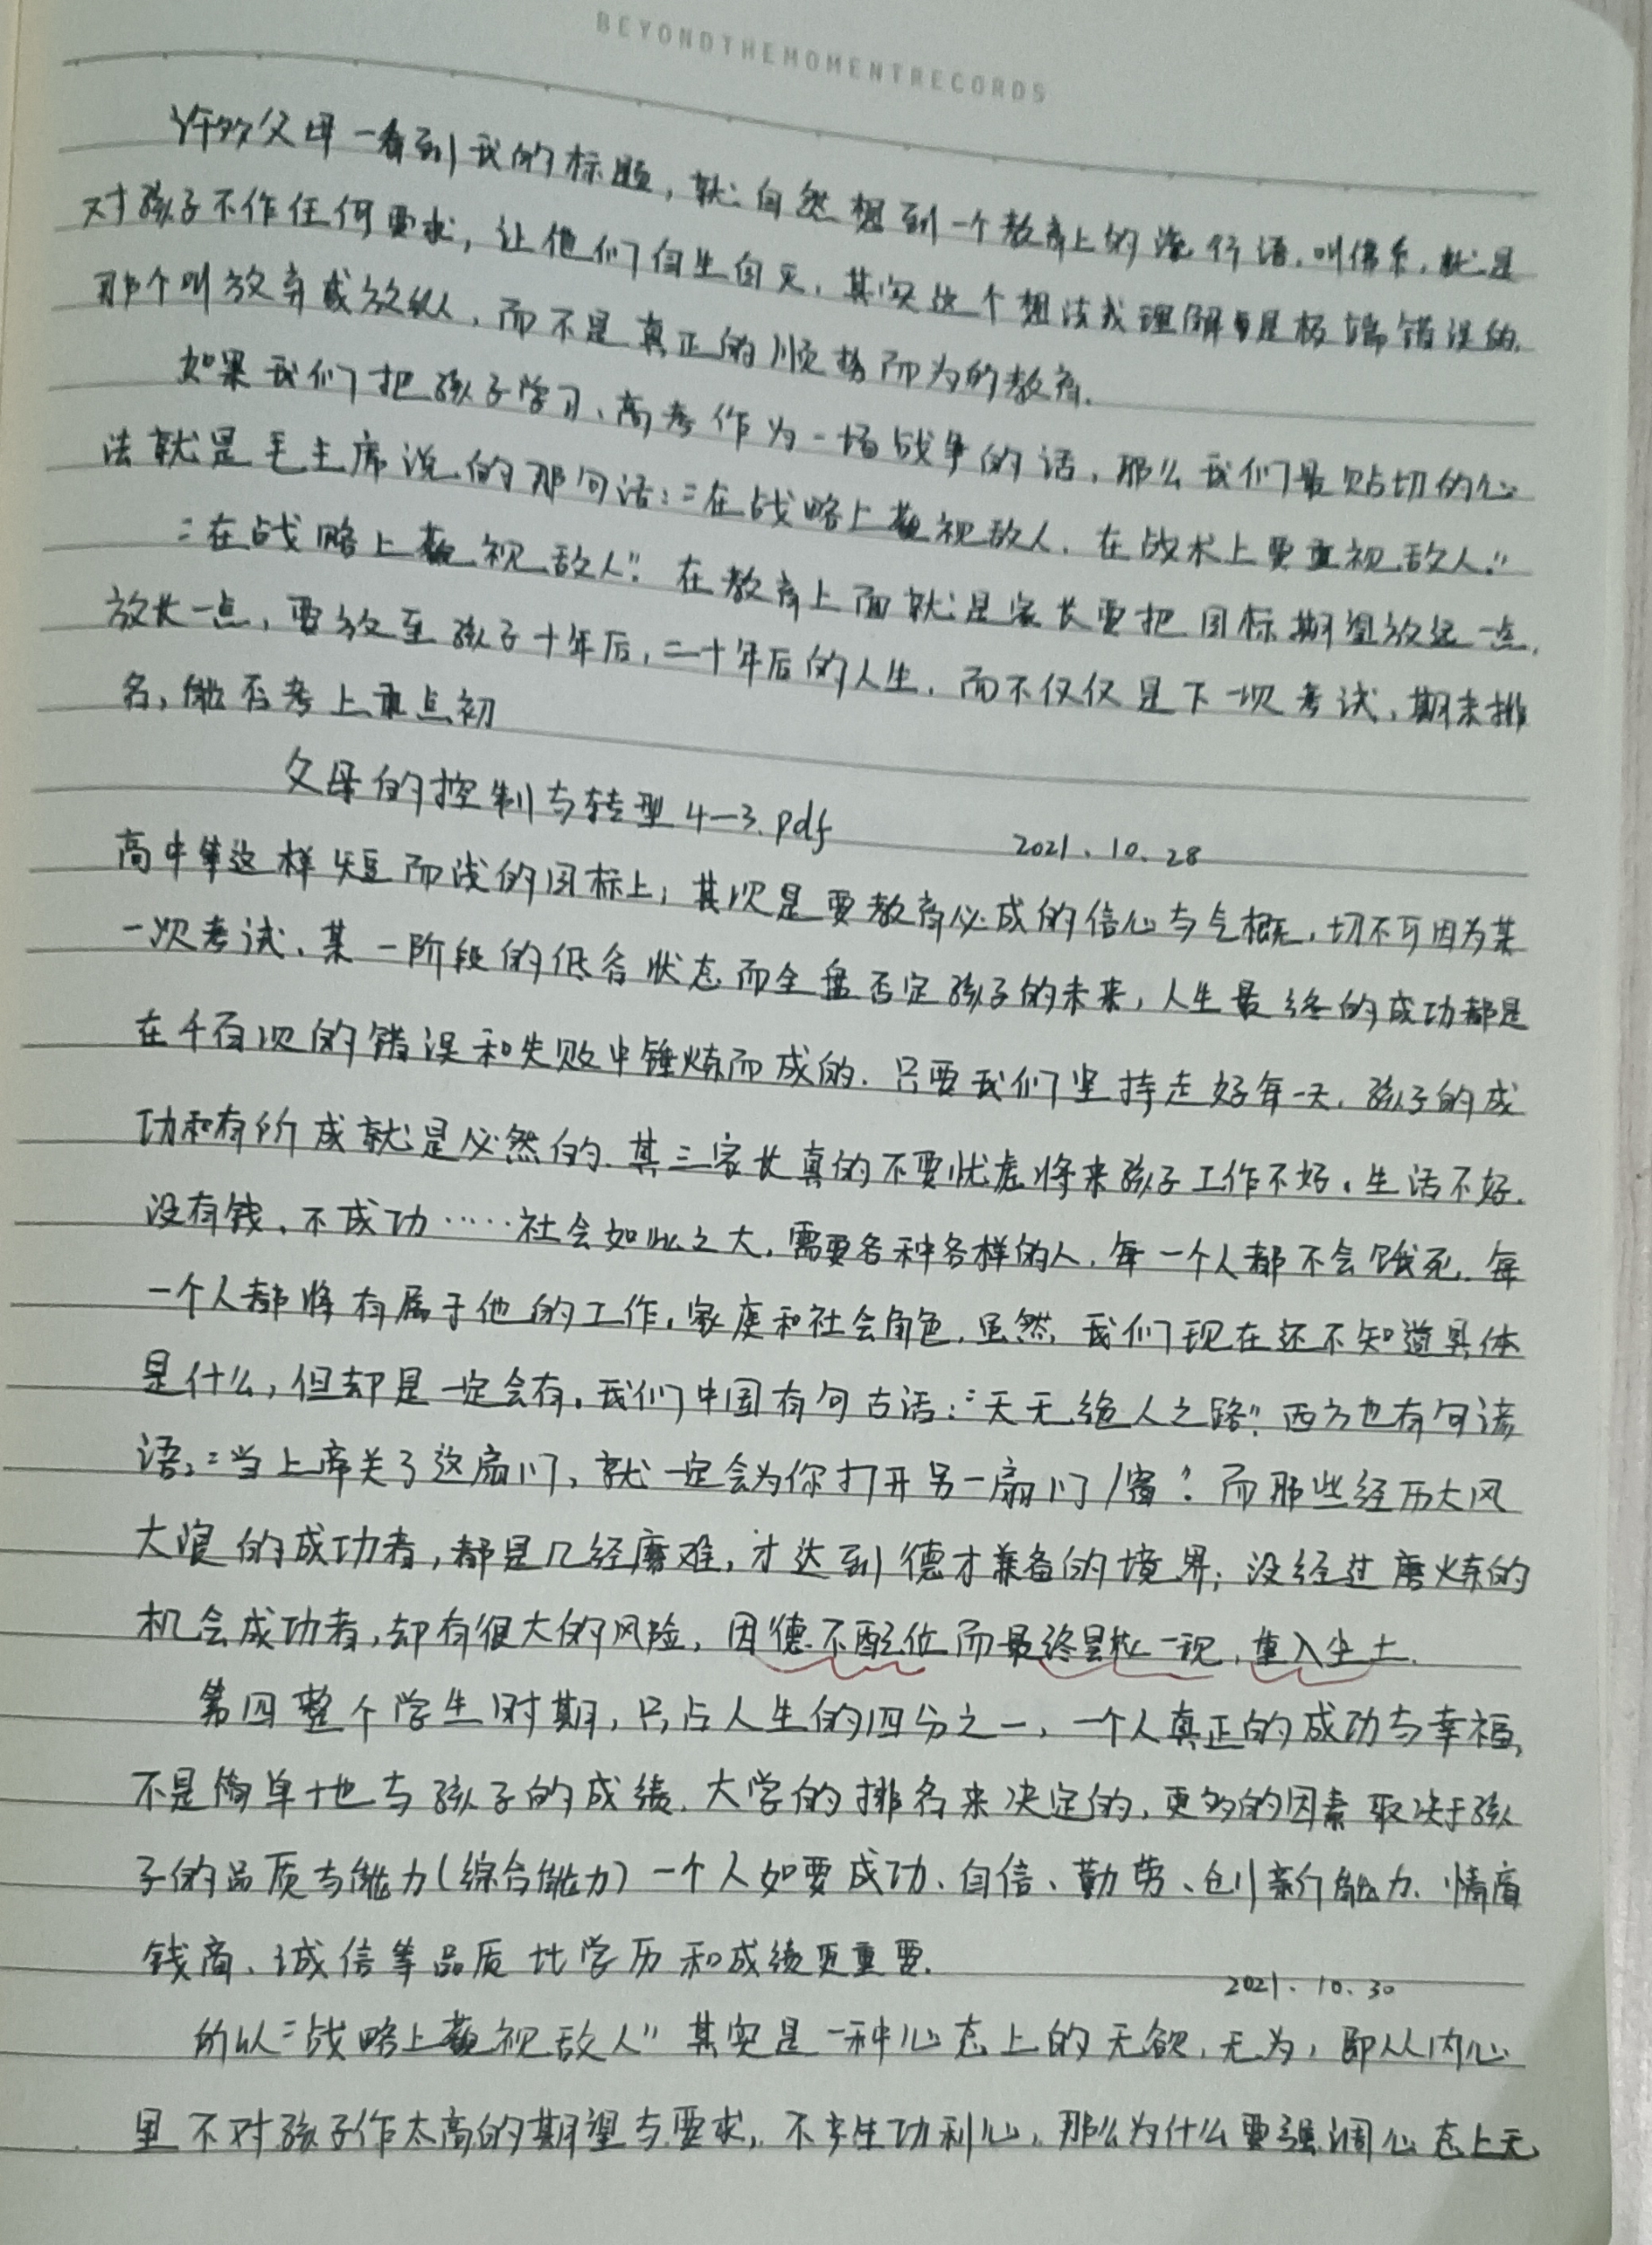 BEYONDTHEMOMENTRECORDS
许多父母一看到我的标题，就自然想到一个教育上的流行语，叫佛系，就是
对孩子不作任何要求，让他们自生自灭，其实这个想法我理解是极端错误的，
那个叫放弃或放纵，而不是真正的顺势而为的教育。
如果我们把孩子学习、高考作为一场战争的话，那么我们最贴切的心
法就是毛主席说的那句话：“在战略上藐视敌人，在战术上要重视敌人。”
“在战略上藐视敌人”。在教育上面就是家长要把目标期望放远一点，
放长一点，要放至孩子十年后，二十年后的人生，而不仅仅是下一次考试，期末排
名，能否考上重点初
父母的控制与转型4—3.pdf 2021.10.28
高中等这样短而浅的目标上，其次是要教育必成的信心与气概，切不可因为某
一次考试、某一阶段的低谷状态而全盘否定孩子的未来，人生最终的成功都是
在千百次的错误和失败中锤炼而成的．只要我们坚持走好每一天，孩子的成
功和有所成就是必然的．其三家长真的不要忧虑将来孩子工作不好．生活不好．
没有钱、不成功……社会如此之大，需要各种各样的人，每一个人都不会饿死．每
一个人都将有属于他的工作，家庭和社会角色，虽然，我们现在还不知道具体
是什么，但却是一定会有。我们中国有句古话：“天无绝人之路”．西方也有句谚
语：“当上帝关了这扇门，就一定会为你打开另一扇门/窗”．而那些经历大风
大浪的成功者，都是几经磨难，才达到德才兼备的境界；没经过磨炼的
机会成功者，却有很大的风险，因德不配位而最终昙花一现，重入尘土．
第四整个学生时期，只占人生的四分之一，一个人真正的成功与幸福，
不是简单地与孩子的成绩．大学的排名来决定的，更多的因素取决于孩
子的品质与能力（综合能力）一个人如要成功、自信、勤劳、创新能力、情商
钱商、诚信等品质比学历和成绩更重要．
2021.10.30
所以“战略上藐视敌人”其实是一种心态上的无欲，无为，即从内心
里不对孩子作太高的期望与要求，不产生功利心，那么为什么要强调心态上无